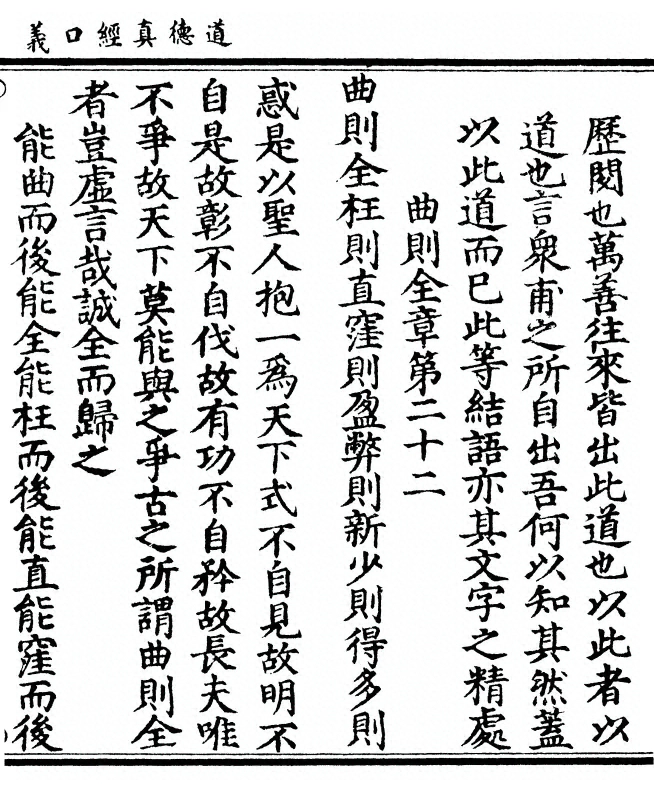 道德真經口義
歷閱也萬善往來皆出此道也以此者以
道也言衆甫之所自出吾何以知其然蓋
以此道而已此等結語亦其文字之精處
曲則全章第二十二
曲則全枉則直窪則盈弊則新少則得多則
惑是以聖人抱一爲天下式不自見故明不
自是故彰不自伐故有功不自矜故長夫唯
不爭故天下莫能與之爭古之所謂曲則全
者豈虛言哉誠全而歸之
能曲而後能全能枉而後能直能窪而後